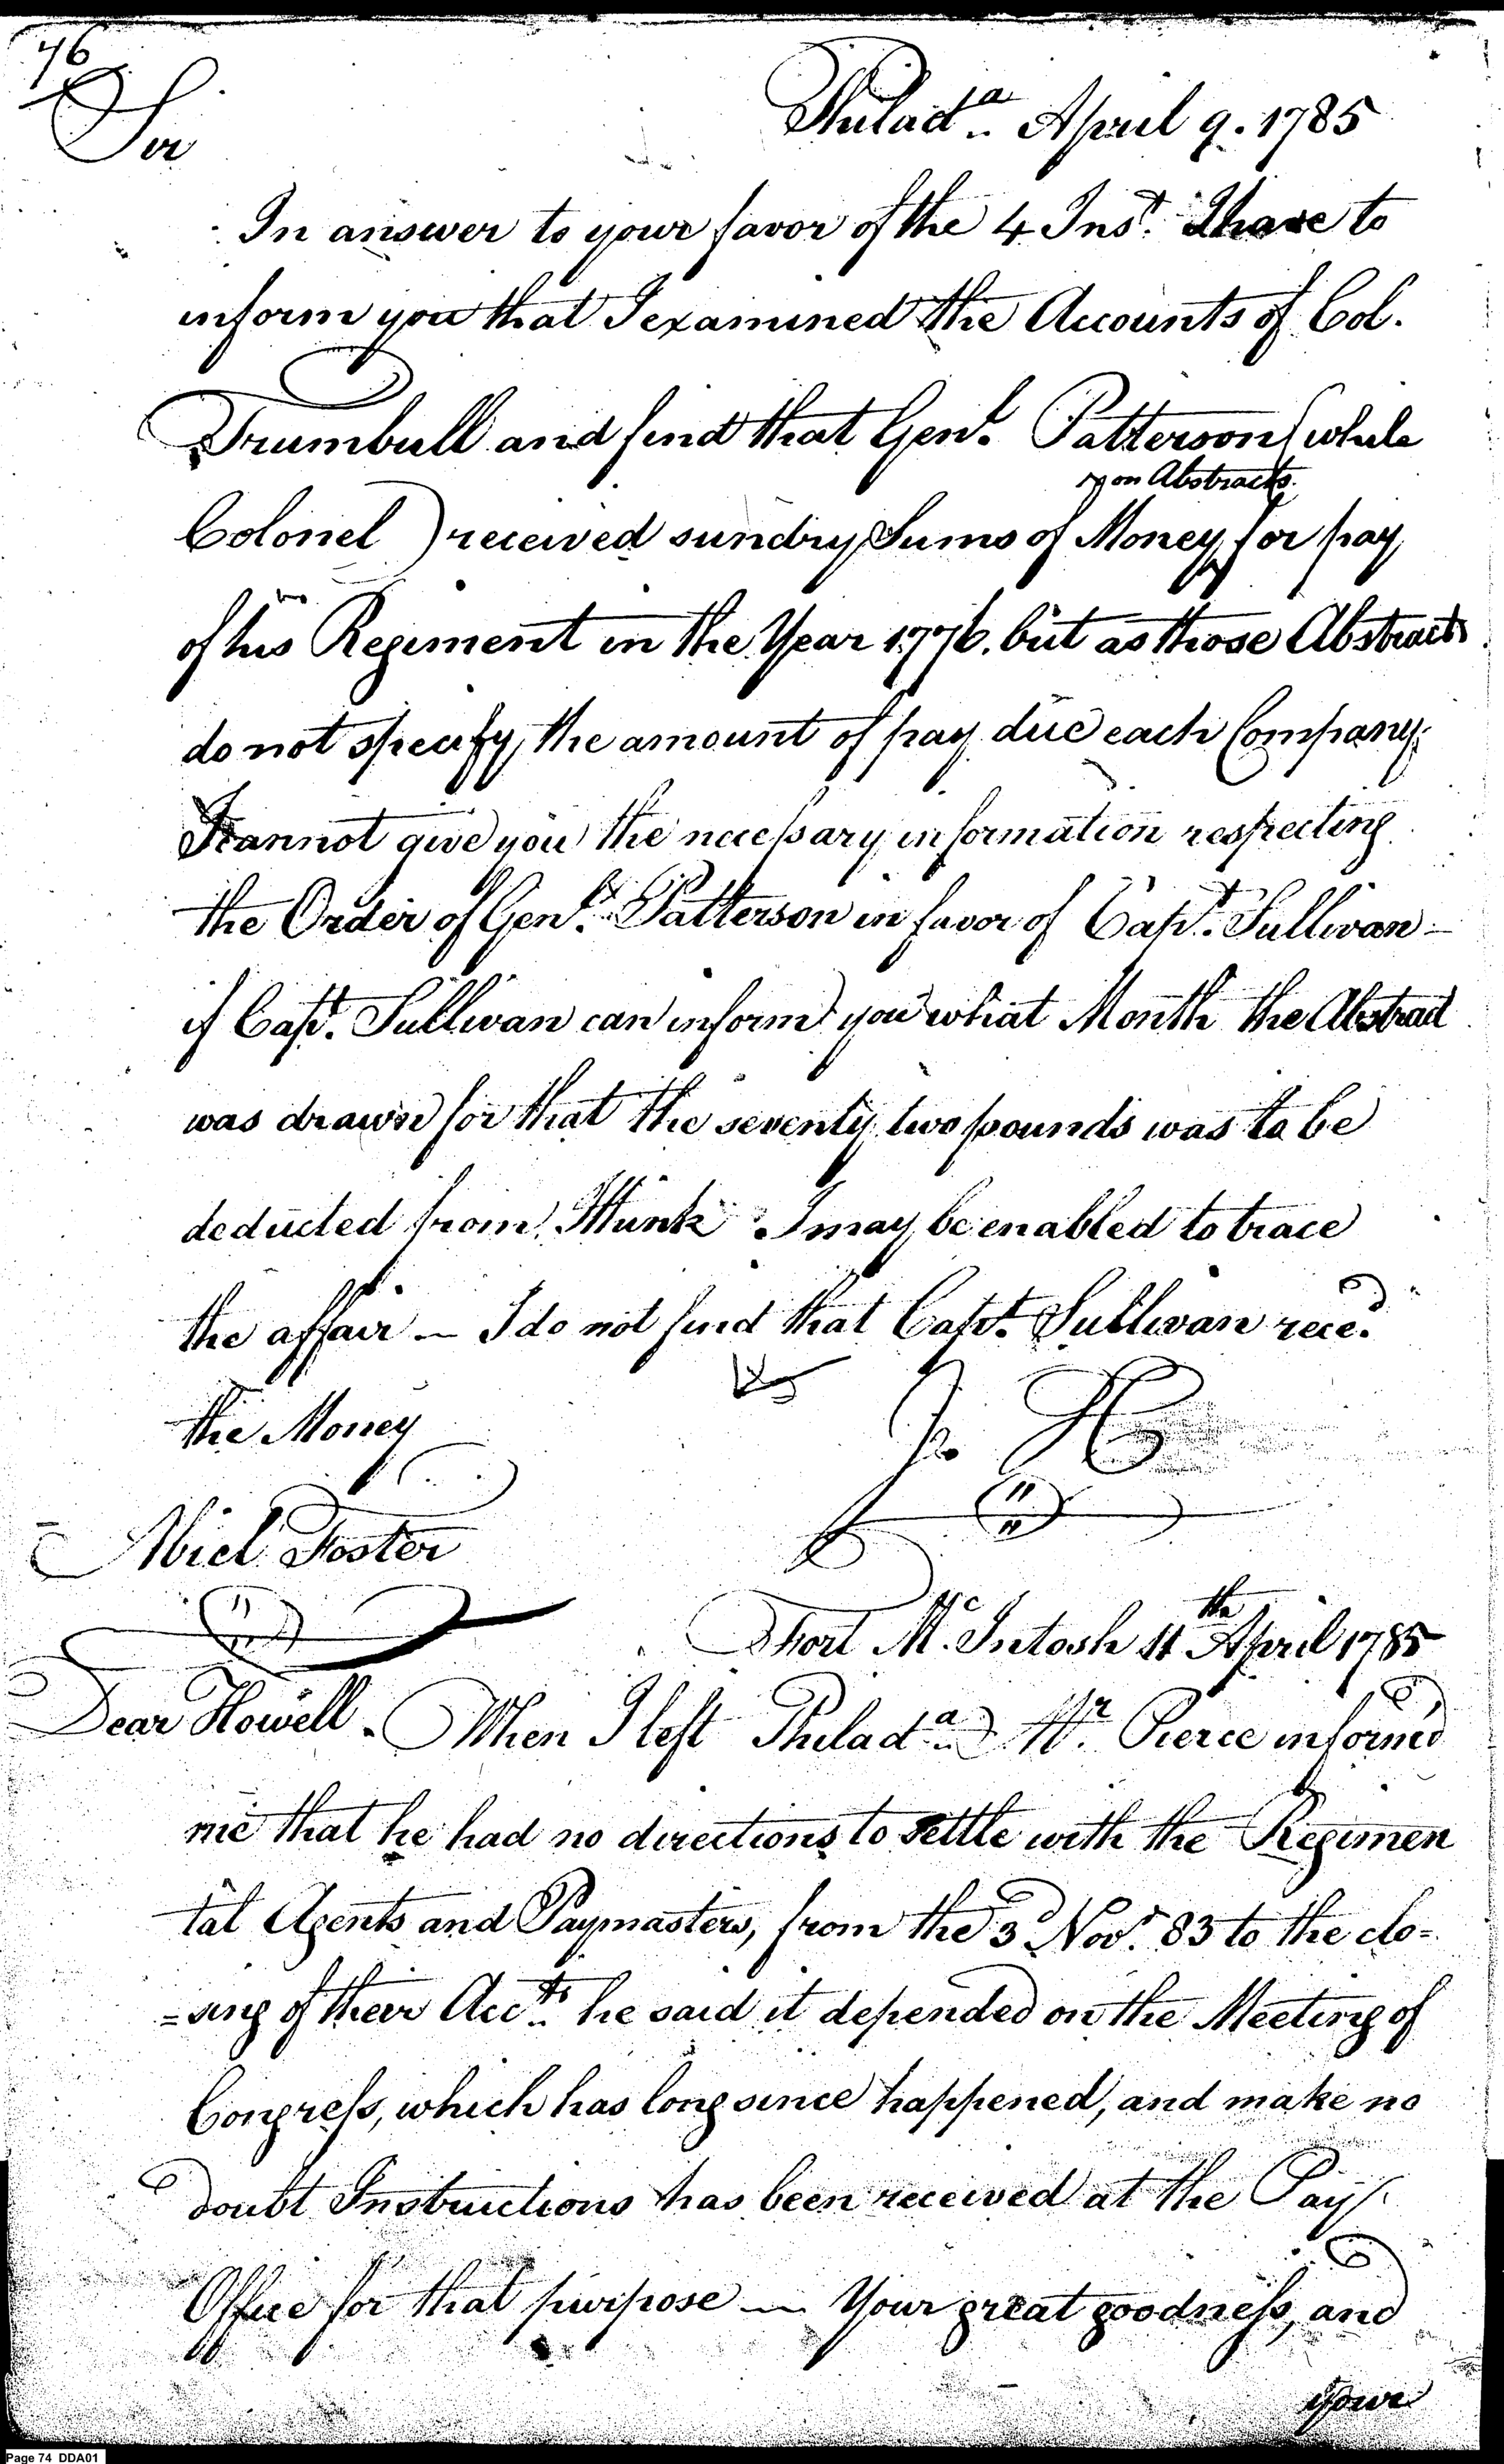 76
Philad.a April 9. 1785
Sir
In answer to your favor of the 4 Inst. I have to
inform you that I examined the Accounts of Col.
Trumbull and find that Genl. Patterson (while
upon Abstracts.
Colonel) received sundry Sums of Money for pay
of his Regiment in the Year 1776. but as those Abstracts
do not specify the amount of pay due each Company,
I cannot give you the necessary information respecting
the Order of Genl. Patterson in favor of Capt. Sullivan —
if Capt. Sullivan can inform you what Month the Abstract
was drawn for that the seventy two pounds was to be
deducted from, I think I may be enabled to trace
the affair — I do not find that Capt. Sullivan reced.
the Money
J. H
Abiel Foster
Fort Mc. Intosh 11th April 1785
Dear Howell. When I left Philad.a Mr. Pierce informed
me that he had no directions to settle with the Regimen
tal Agents and Paymasters, from the 3d Novr. 83 to the clo=
=sing of their Accts. he said it depended on the Meeting of
Congress, which has long since happened, and make no
doubt Instructions has been received at the Pay
Office for that purpose — Your great goodness, and
your
Page 74 DDA01